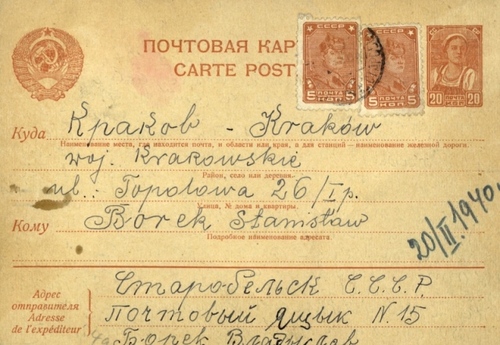 ПОЧТОВАЯ КАР
CARTE POST
СССР
5 ПОЧТА 5
КОП.
СССР
5 ПОЧТА 5
КОП.
20 20
Куда Краков - Kraków
Наименование места, где находится почта, и области или края, а для станций — наименование железной дороги.
woj. Krakowskie
Район, село или деревня.
ul.: Topolowa 26/I p.
Улица, № дома и квартиры.
Кому Borek Stanisław
Подробное наименование адресата.
20/II. 1940
Адрес
отправителя
Adresse de
l'expéditeur
Старобельск С.С.С.Р.
Почтовый ящык N. 15
Борек Владыслав